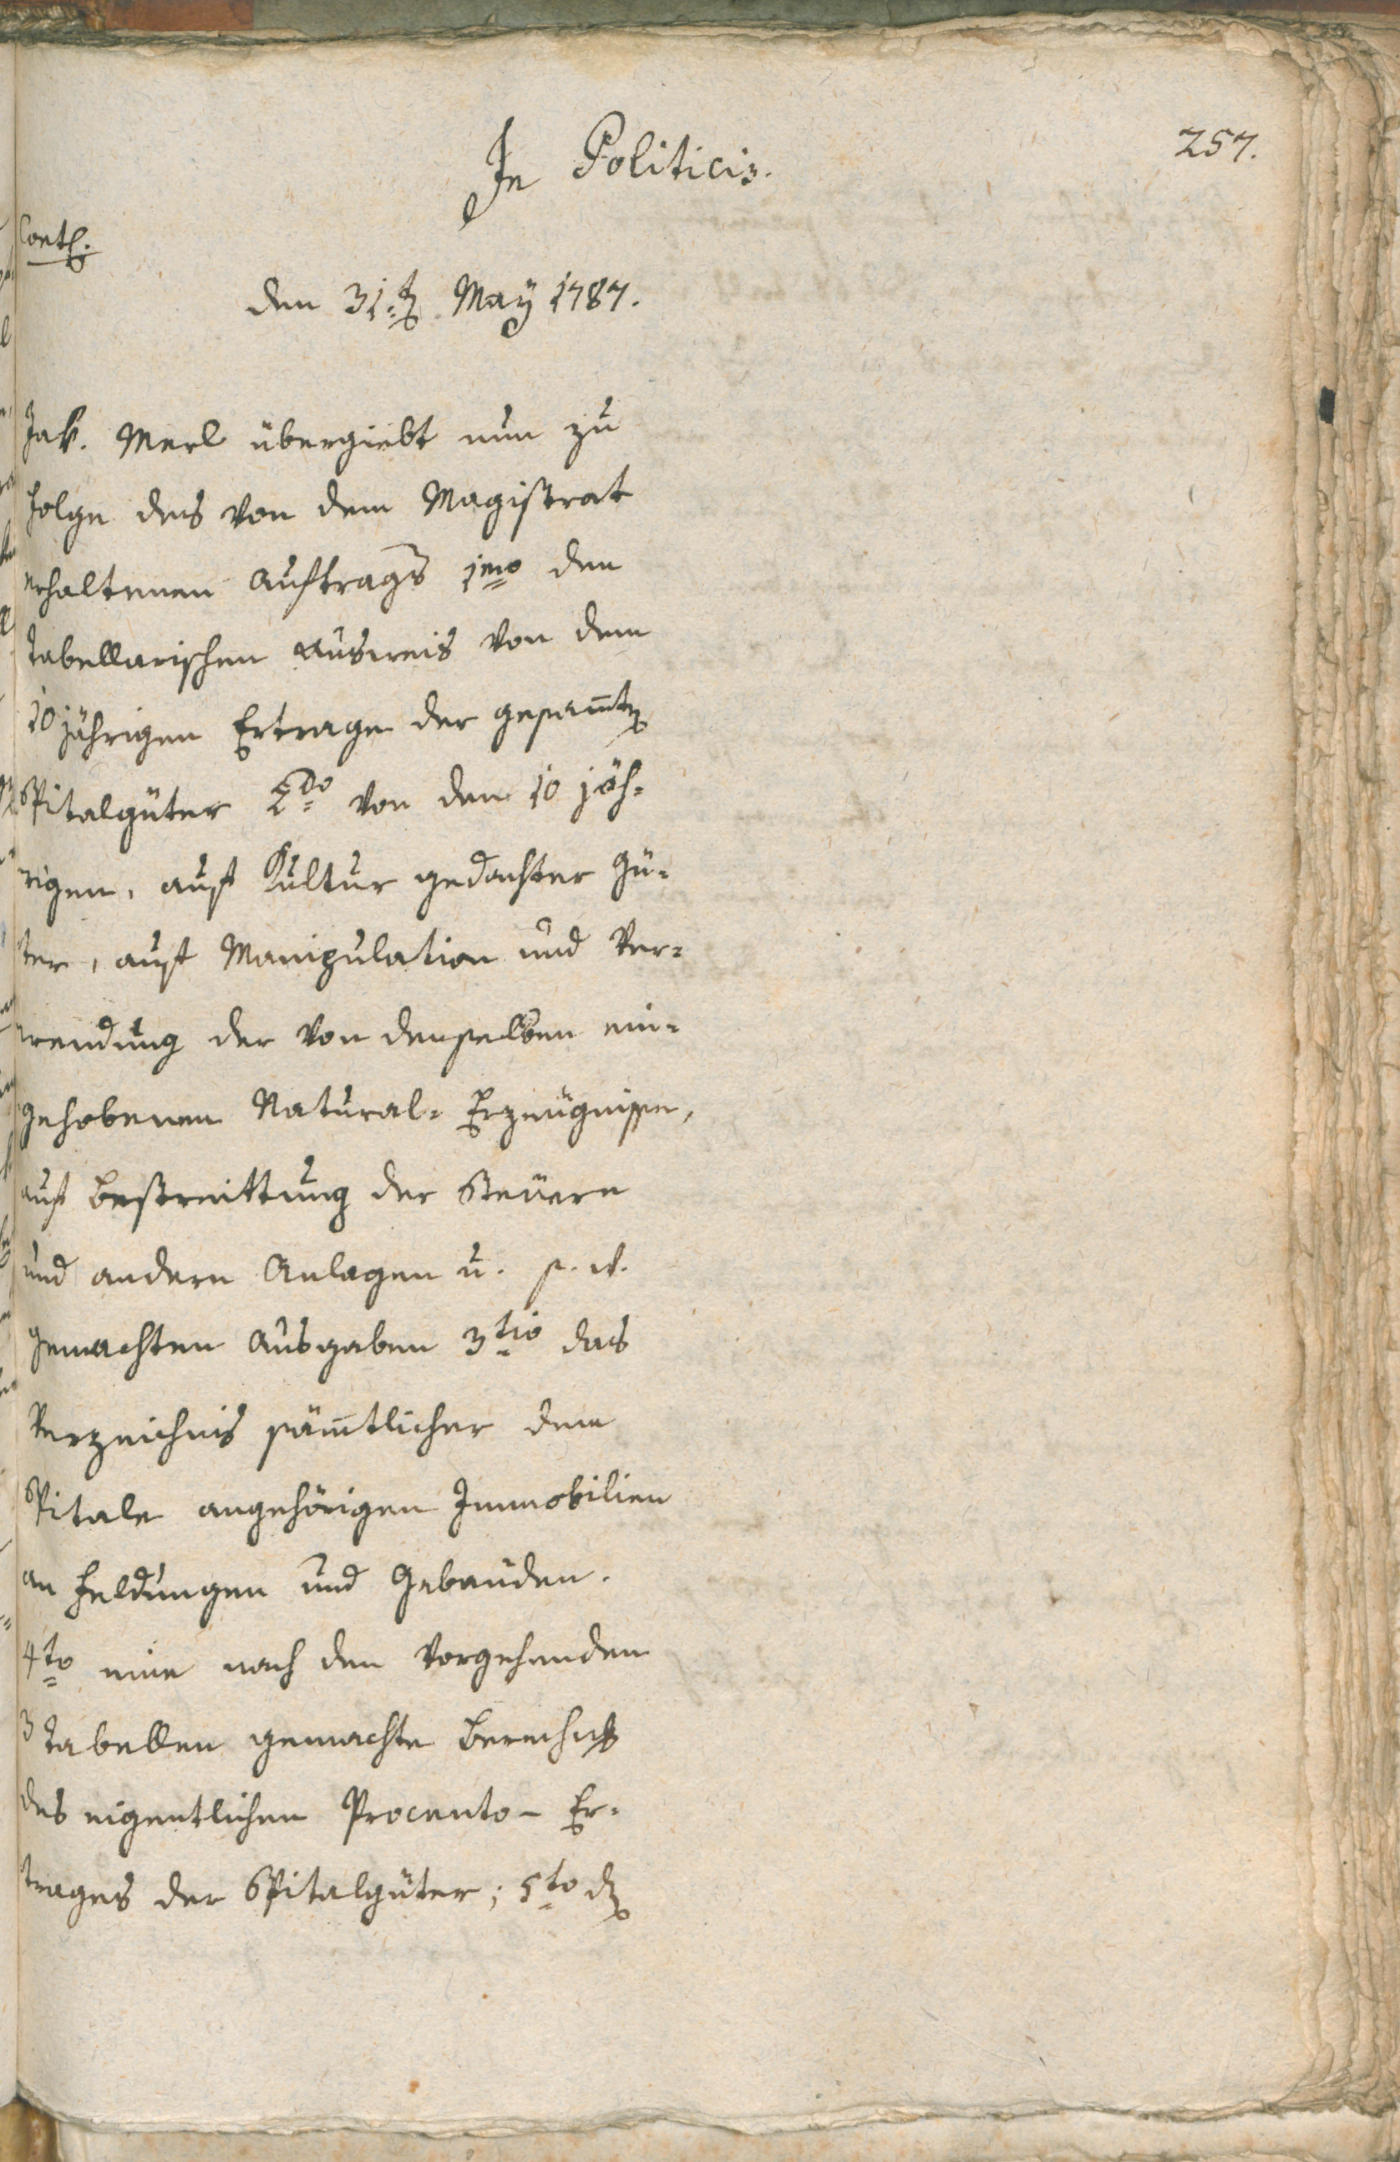 In Politicis.
257.
den 31=ten May 1787.
Jak. Merl übergiebt nun zu
folge des von dem Magistrat
erhaltenen Auftrags 1mo den
tabellarischen Ausweis von dem
10 jährigen Ertrage der gesam̄ten
Spitalgüter 2do von den 10 jäh=
rigen, auf Kultur gedachter Gü=
ter, auf Manipulation und Ver=
wendung der von denselben ein=
gehobenen Natural= Erzeugnisse,
auf Bestreittung der Steüern
und andern Anlagen u. s. w.
gemachten Ausgaben 3tio das
Verzeichnis säm̄tlicher dem
Spitale angehörigen Immobilien
an Feldungen und Gebäuden.
4to eine nach den vorgehenden
3 Tabellen gemachte Berechng
des eigentlichen Procento- Er=
trages der Spitalgüter; 5to den